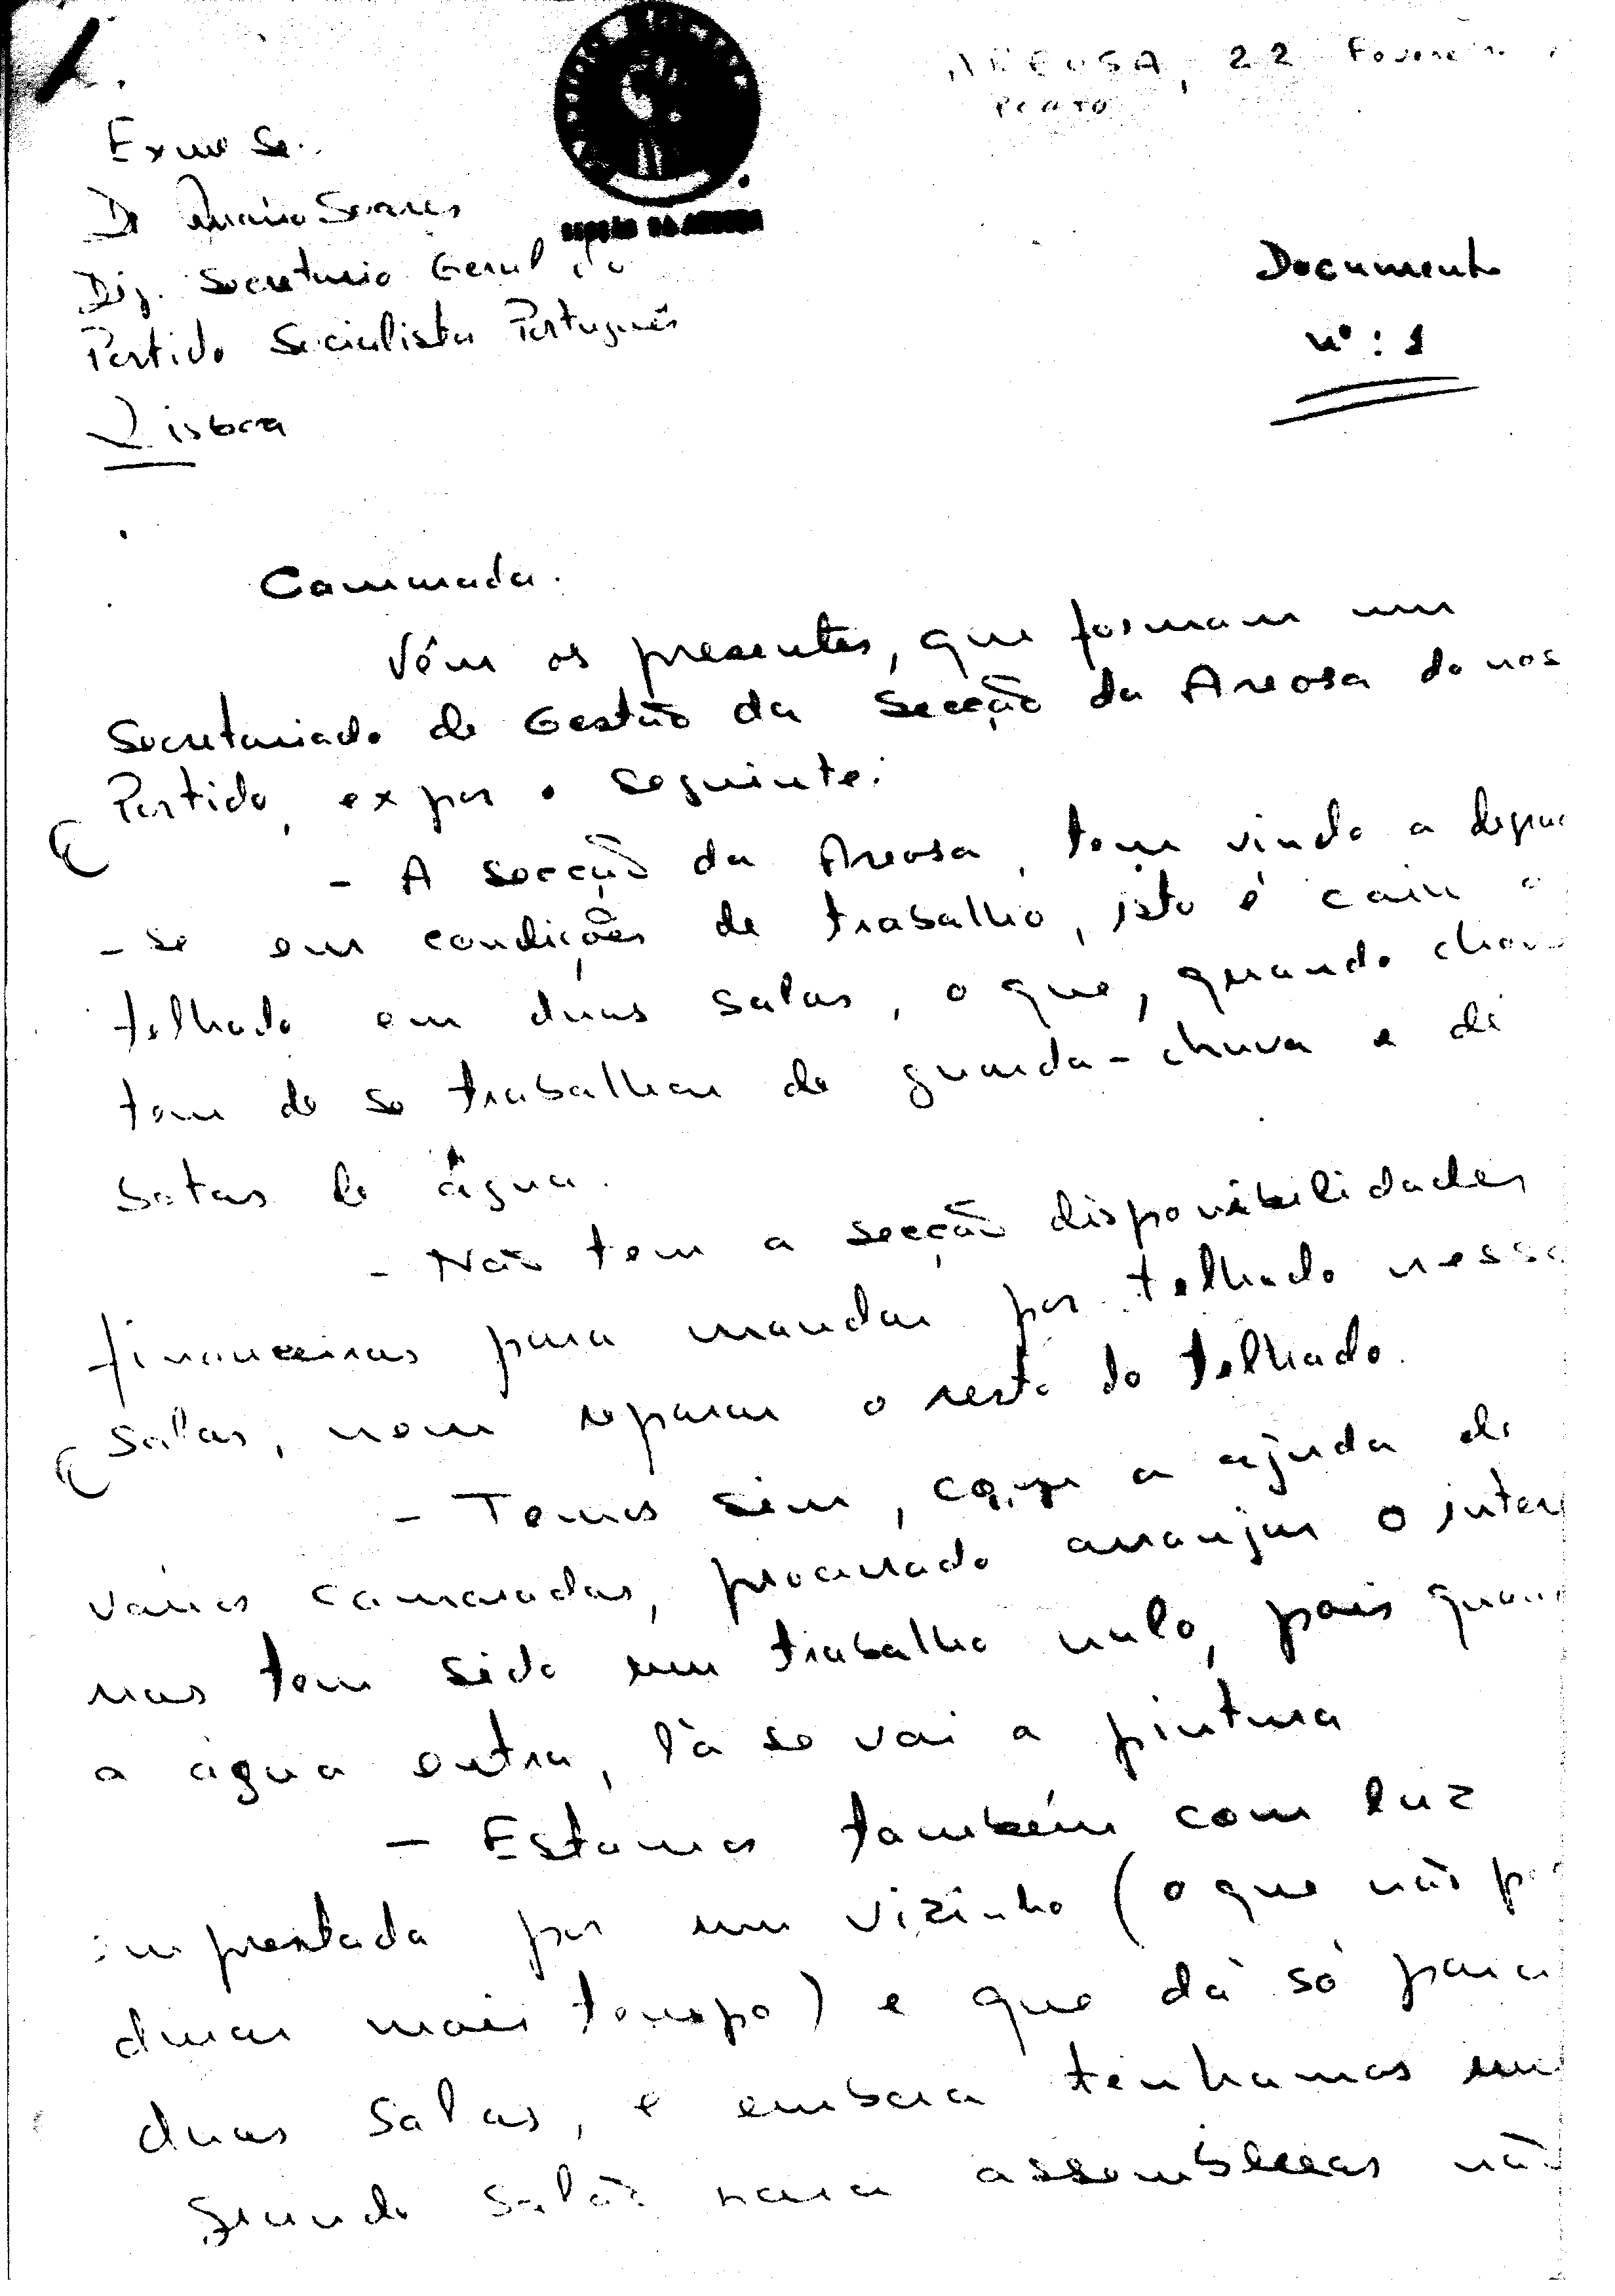 AREOSA, 22 Fevereiro
Porto
Exmo Sr.
Dr Mario Soares
SECÇÃO DA AREOSA
Dig. Secretario Geral do
Partido Socialista Português
Lisboa
Documento
nº: 1
Cammarada.
Vêm os presentes, que formam um
Secretariado de Gestão da Secção da Areosa do nos
Partido, expor o seguinte:
- A secção da Areosa, tem vindo a
-se em condições de trabalho, isto é caiu o
telhado em duas salas, o que, quando
tem de se trabalhar de guarda-chuva e de
botas de água.
- Não tem a secção disponibilidades
financeiras para mandar por telhado nessa
salas, nem reparar o resto do telhado.
- Temos sim, com a ajuda de
varios camaradas, procurado arranjar o inter
mas tem sido um trabalho nulo, pois quan
a água entra, lá se vai a pintura
- Estamos também com luz
emprestada por um vizinho (o que não p
durar mais tempo) e que dá só para
duas salas, e embora tenhamos um
grande salão para assembleias não